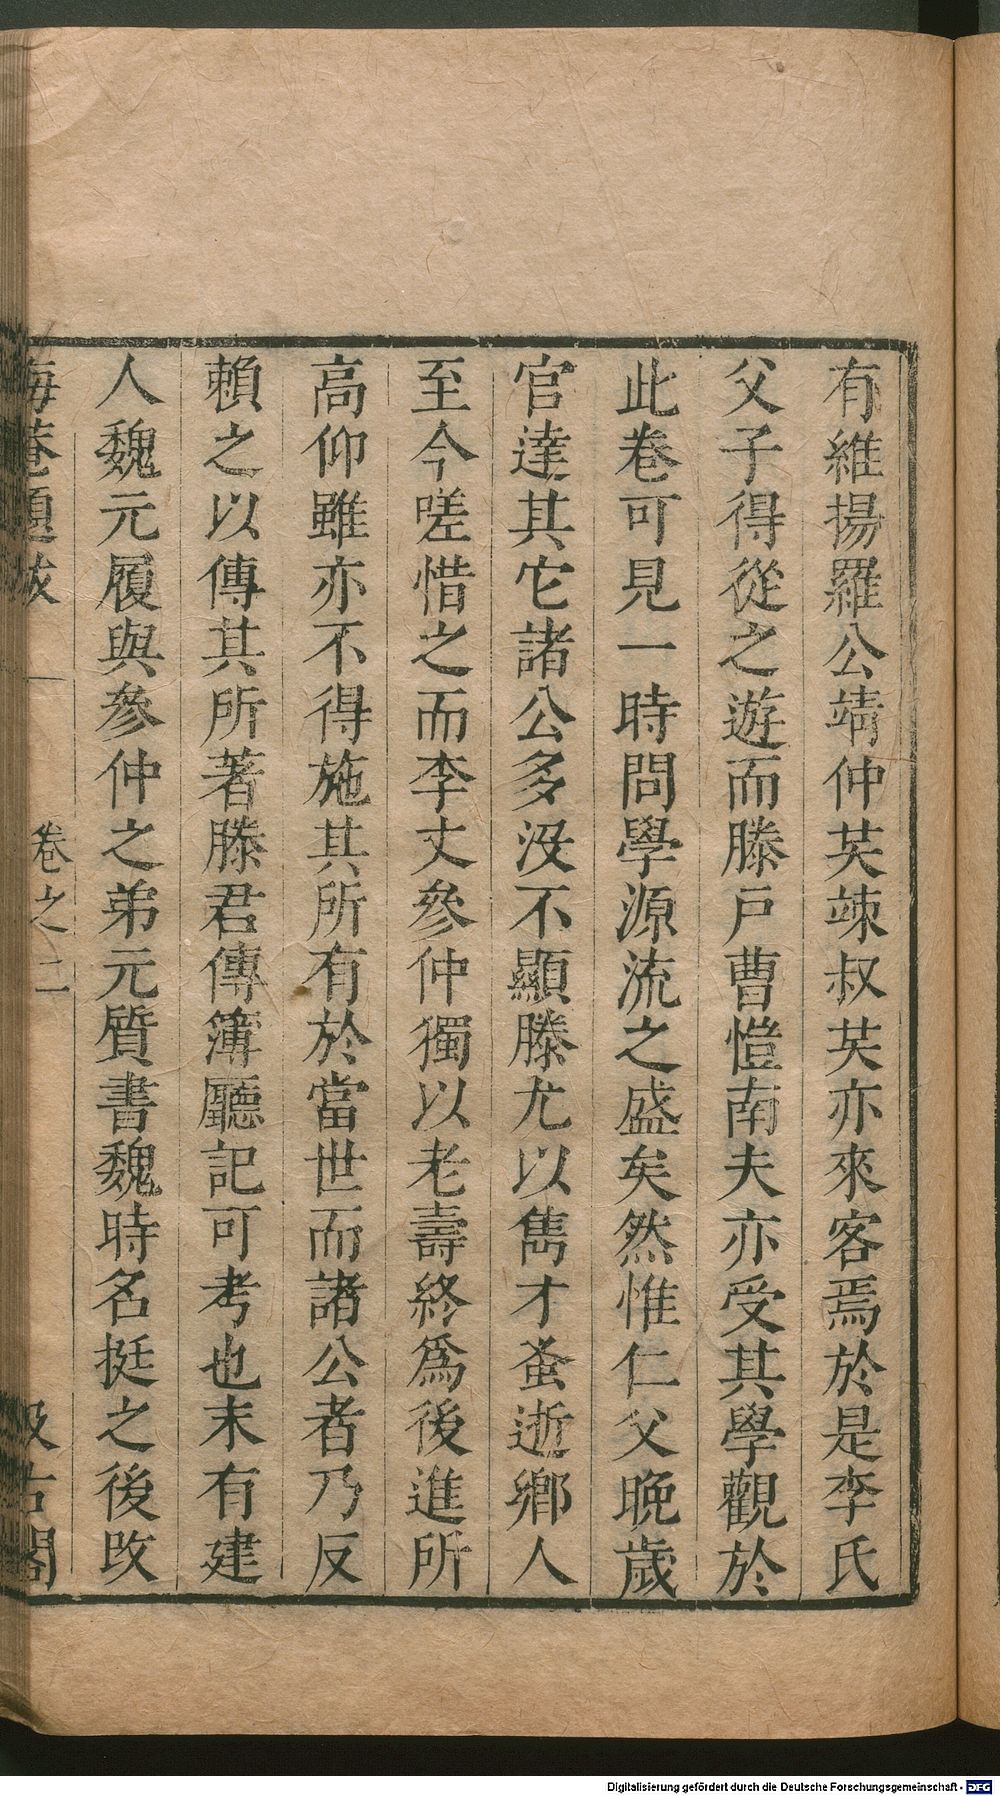 有維揚羅公靖仲芖竦叔芖亦來客焉於是李氏
父子得從之遊而滕戶曹愷南夫亦受其學觀於
此卷可見一時問學源流之盛矣然惟仁父晚歲
官達其它諸公多沒不顯滕尤以雋才蚤逝鄉人
至今嗟惜之而李丈參仲獨以老壽終爲後進所
高仰雖亦不得施其所有於當世而諸公者乃反
賴之以傳其所著滕君傳簿廳記可考也末有建
人魏元履與參仲之弟元質書魏時名挺之後改
海菴題跋 卷之二 汲古閣
Digitalisierung gefördert durch die Deutsche Forschungsgemeinschaft - DFG